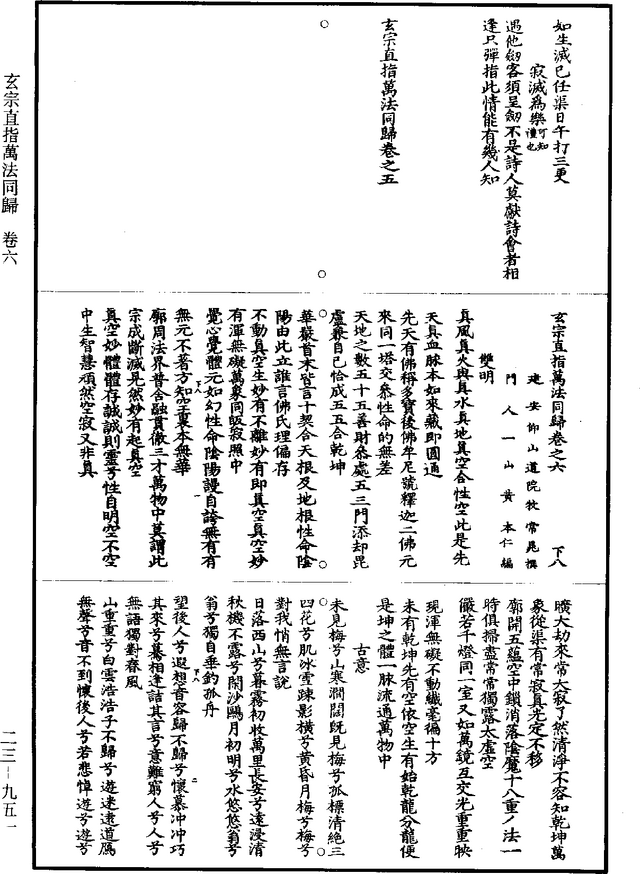 玄宗直指萬法同歸 卷六
二三－九五一
如生滅已任渠日午打三更
寂滅為樂可知禮也
遇他劒客須呈劒不是詩人莫獻詩會者相
逢只彈指此情能有幾人知
玄宗直指萬法同歸卷之五
玄宗直指萬法同歸卷之六 下八
建安仰山道院牧常晁撰
門人一山黃本仁編
雙明
真風真火與真水真地真空合性空此是先
天真血脉本如來藏即圓通
先天有佛稱多寶後佛牟尼號釋迦二佛元
來同一塔交叅性命的無差
天地之數五十五善財叅處五三門添却毘
盧兼自己恰成五五合乾坤
華嚴首末皆言十契合天根及地根性命陰
陽由此立誰言佛氏理偏存
不動真空生妙有不離妙有即真空真空妙
有渾無礙萬象同皈寂照中
覺心覺體元如幻性命陰陽謾自誇無有有
無元不著方知空裏本無華
廓周法界普含融貫徹三才萬物中莫謂此
宗成斷滅炅然妙有起真空
真空妙體體存誠誠則靈兮性自明空不空
中生智慧頑然空寂又非真
曠大劫來常大寂了然清淨不容知乾坤萬
象從渠有常寂真光定不移
廓開五蘊空中鎖消落陰魔十八重丿法一
時俱掃盡常常獨露太虛空
儼若千燈同一室又如萬鏡互交光重重映
現渾無礙不動纖毫徧十方
未有乾坤先有空依空生有始乾龍分龍便
是坤之體一脉流通萬物中
古意
未見梅兮山寒澗闊既見梅兮孤標清絕三
四花兮肌氷雪踈影橫兮黃昏月梅兮梅兮
對我悄無言說
日落西山兮暮霧初收萬里長安兮遠浸清
秋機不露兮閑沙鷗月初明兮水悠悠翁兮
翁兮獨自垂釣孤舟
望後人兮遐想音容歸不歸兮懷慕冲冲巧
其來兮驀相逢詰其言兮意難窮人兮人兮
無語獨對春風
山重重兮白雲浩浩子不歸兮遊迷遠道鴈
無聲兮音不到懷後人兮若悲悼遊兮遊兮